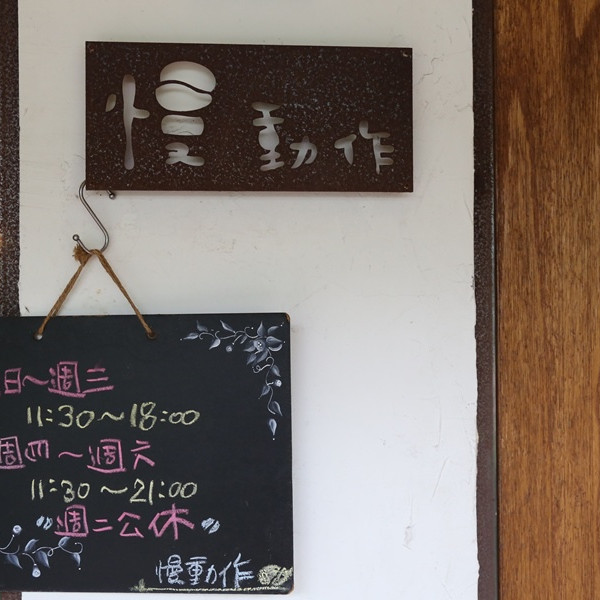 慢動作
日～週三
11:30～18:00
週四～週六
11:30～21:00
週二公休
慢動作